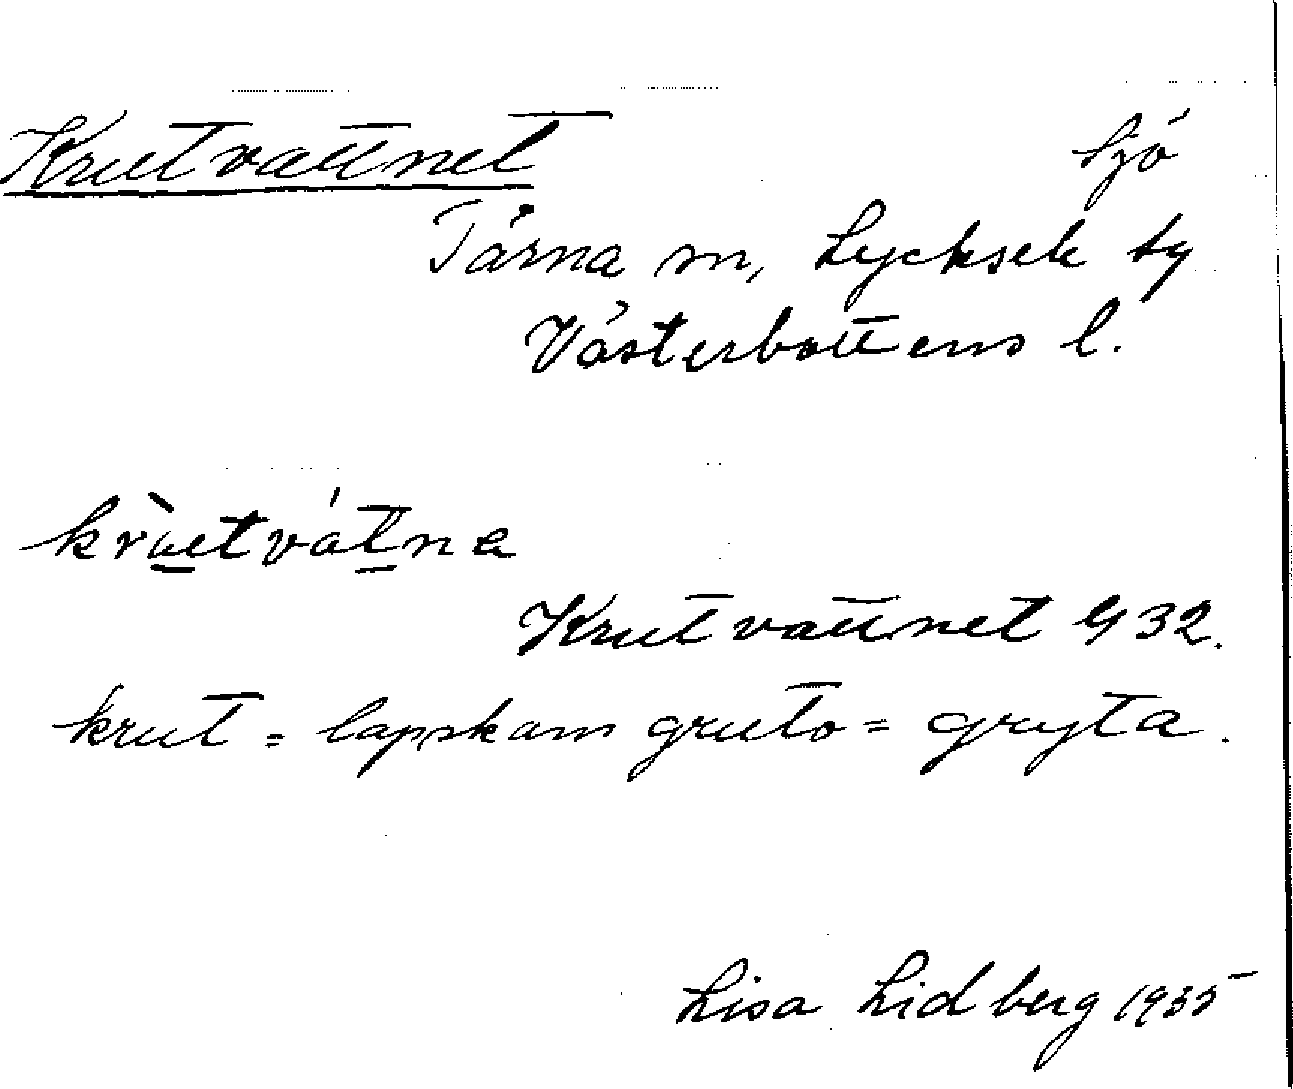 Kruttvattnet sjö
Tärna sn, Lycksele ty
Västerbottens l.
krùtvátna
Krutvattnet G 32.
krut = lapskan gruto = gryta.
Lisa Lidberg 1935